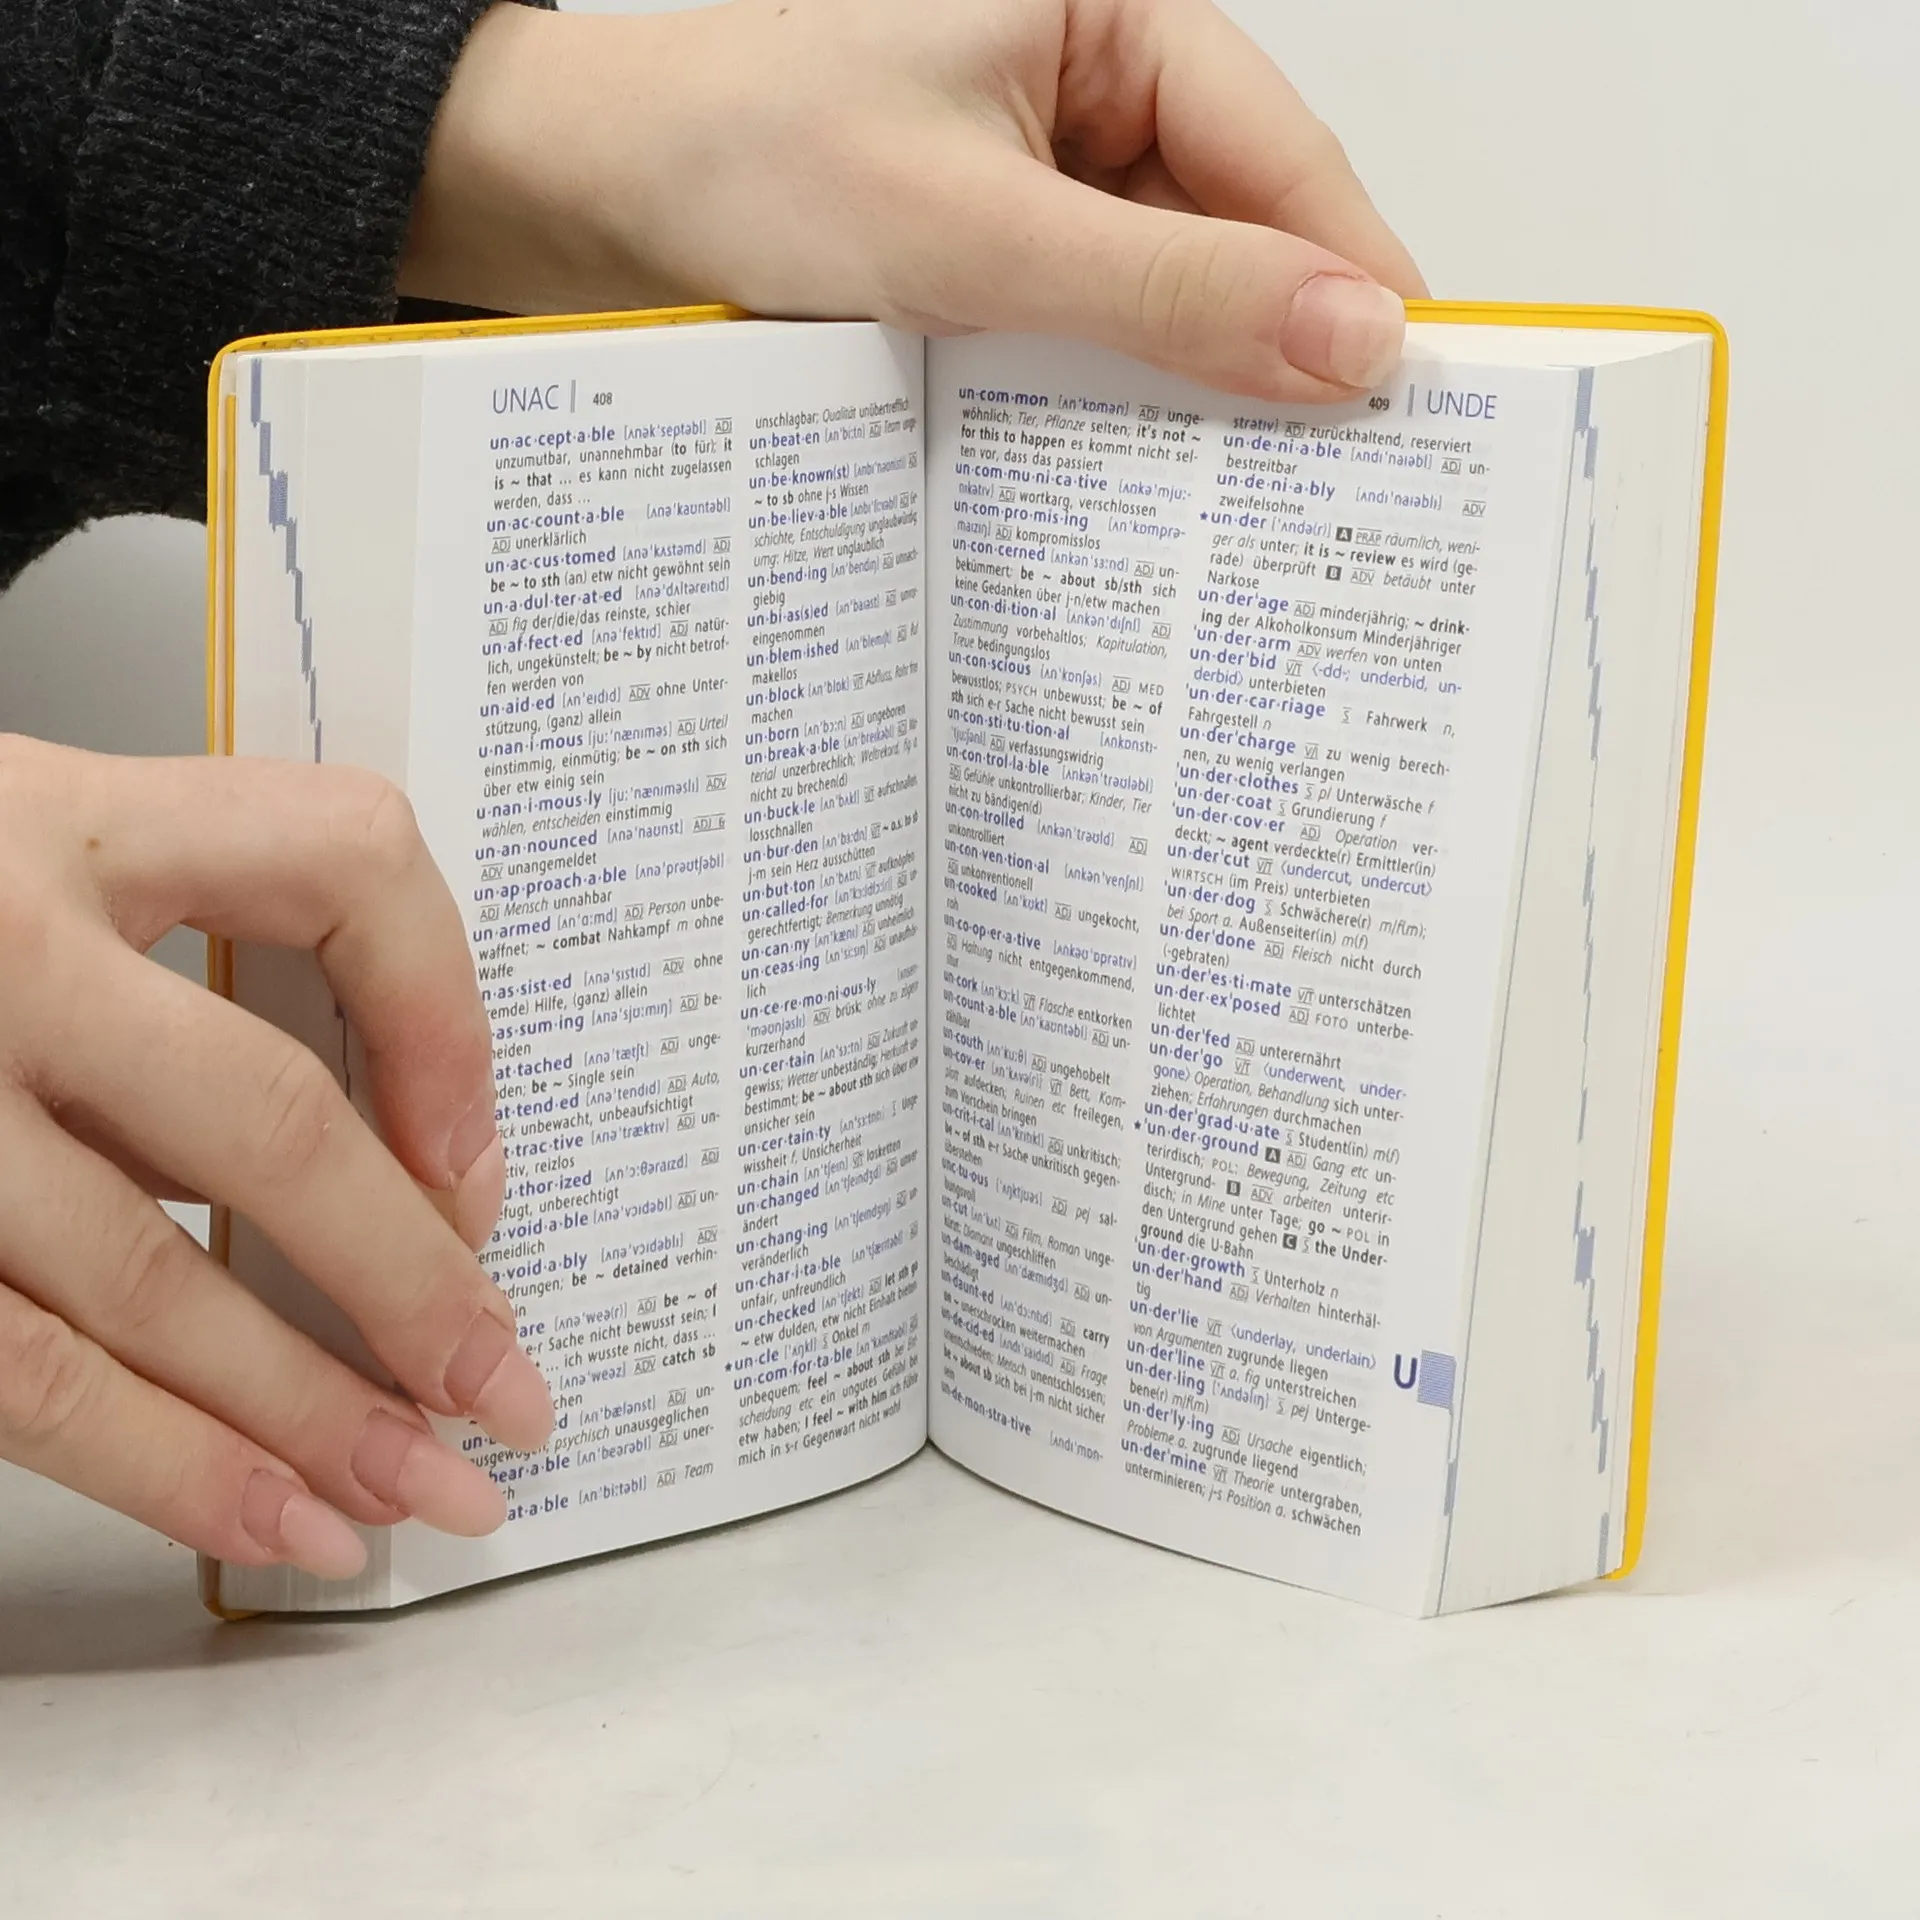 UNAC | 408
un·ac·cept·a·ble [ʌnəkˈseptəbl] ADJ
unzumutbar, unannehmbar (to für); it
is ~ that ... es kann nicht zugelassen
werden, dass ...
un·ac·count·a·ble [ʌnəˈkaʊntəbl]
ADJ unerklärlich
un·ac·cus·tomed [ʌnəˈkʌstəmd] ADJ
be ~ to sth (an) etw nicht gewöhnt sein
un·a·dul·ter·at·ed [ʌnəˈdʌltəreɪtɪd]
ADJ fig der/die/das reinste, schier
un·af·fect·ed [ʌnəˈfektɪd] ADJ natür-
lich, ungekünstelt; be ~ by nicht betrof-
fen werden von
un·aid·ed [ʌnˈeɪdɪd] ADV ohne Unter-
stützung, (ganz) allein
u·nan·i·mous [juːˈnænɪməs] ADJ Urteil
einstimmig, einmütig; be ~ on sth sich
über etw einig sein
u·nan·i·mous·ly [juːˈnænɪməslɪ] ADV
wählen, entscheiden einstimmig
un·an·nounced [ʌnəˈnaʊnst] ADJ &
ADV unangemeldet
un·ap·proach·a·ble [ʌnəˈprəʊtʃəbl]
ADJ Mensch unnahbar
un·armed [ʌnˈɑːmd] ADJ Person unbe-
waffnet; ~ combat Nahkampf m ohne
Waffe
n·as·sist·ed [ʌnəˈsɪstɪd] ADV ohne
emde) Hilfe, (ganz) allein
as·sum·ing [ʌnəˈsjuːmɪŋ] ADJ be-
eiden
at·tached [ʌnəˈtætʃt] ADJ unge-
den; be ~ Single sein
at·tend·ed [ʌnəˈtendɪd] ADJ Auto,
ck unbewacht, unbeaufsichtigt
t·trac·tive [ʌnəˈtræktɪv] ADJ un-
tiv, reizlos
u·thor·ized [ʌnˈɔːθəraɪzd] ADJ
efugt, unberechtigt
a·void·a·ble [ʌnəˈvɔɪdəbl] ADJ un-
ermeidlich
a·void·a·bly [ʌnəˈvɔɪdəblɪ] ADV
drungen; be ~ detained verhin-
in
are [ʌnəˈweə(r)] ADJ be ~ of
e-r Sache nicht bewusst sein; I
... ich wusste nicht, dass ...
[ʌnəˈweəz] ADV catch sb
chen
ed [ʌnˈbælənst] ADJ un-
ausgewogen; psychisch unausgeglichen
bear·a·ble [ʌnˈbeərəbl] ADJ uner-
h
at·a·ble [ʌnˈbiːtəbl] ADJ Team
unschlagbar; Qualität unübertrefflich
un·beat·en [ʌnˈbiːtn] ADJ Team unge-
schlagen
un·be·known(st) [ʌnbɪˈnəʊn(st)] ADJ
~ to sb ohne j-s Wissen
un·be·liev·a·ble [ʌnbɪˈliːvəbl] ADJ Ge-
schichte, Entschuldigung unglaubwürdig
umg: Hitze, Wert unglaublich
un·bend·ing [ʌnˈbendɪŋ] ADJ unnach-
giebig
un·bi·as(s)ed [ʌnˈbaɪəst] ADJ unvor-
eingenommen
un·blem·ished [ʌnˈblemɪʃt] ADJ Ruf
makellos
un·block [ʌnˈblɒk] V/T Abfluss, Rohr frei
machen
un·born [ʌnˈbɔːn] ADJ ungeboren
un·break·a·ble [ʌnˈbreɪkəbl] ADJ Ma-
terial unzerbrechlich; Weltrekord, fig a.
nicht zu brechen(d)
un·buck·le [ʌnˈbʌkl] V/T aufschnallen,
losschnallen
un·bur·den [ʌnˈbɜːdn] V/T ~ o.s. to sb
j-m sein Herz ausschütten
un·but·ton [ʌnˈbʌtn] V/T aufknöpfen
un·called-for [ʌnˈkɔːldfɔː(r)] ADJ un-
gerechtfertigt; Bemerkung unnötig
un·can·ny [ʌnˈkænɪ] ADJ unheimlich
un·ceas·ing [ʌnˈsiːsɪŋ] ADJ unaufhör-
lich
un·ce·re·mo·ni·ous·ly [ʌnserɪ-
ˈməʊnjəslɪ] ADV brüsk; ohne zu zögern
kurzerhand
un·cer·tain [ʌnˈsɜːtn] ADJ Zukunft un-
gewiss; Wetter unbeständig; Herkunft un-
bestimmt; be ~ about sth sich über etw
unsicher sein
un·cer·tain·ty [ʌnˈsɜːtntɪ] S Unge
wissheit f, Unsicherheit
un·chain [ʌnˈtʃeɪn] V/T losketten
un·changed [ʌnˈtʃeɪndʒd] ADJ unver-
ändert
un·chang·ing [ʌnˈtʃeɪndʒɪŋ] ADJ un-
veränderlich
un·char·i·ta·ble [ʌnˈtʃærɪtəbl] ADJ
unfair, unfreundlich
un·checked [ʌnˈtʃekt] ADJ let sth go
~ etw dulden, etw nicht Einhalt bieten
★un·cle [ˈʌŋkl] S Onkel m
un·com·for·ta·ble [ʌnˈkʌmftəbl] ADJ
unbequem; feel ~ about sth bei Ent-
scheidung etc ein ungutes Gefühl bei
etw haben; I feel ~ with him ich fühle
mich in s-r Gegenwart nicht wohl
409 | UNDE
un·com·mon [ʌnˈkɒmən] ADJ unge-
wöhnlich; Tier, Pflanze selten; it's not ~
for this to happen es kommt nicht sel-
ten vor, dass das passiert
un·com·mu·ni·ca·tive [ʌnkəˈmjuː-
nɪkətɪv] ADJ wortkarg, verschlossen
un·com·pro·mis·ing [ʌnˈkɒmprə-
maɪzɪŋ] ADJ kompromisslos
un·con·cerned [ʌnkənˈsɜːnd] ADJ un-
bekümmert; be ~ about sb/sth sich
keine Gedanken über j-n/etw machen
un·con·di·tion·al [ʌnkənˈdɪʃnl] ADJ
Zustimmung vorbehaltlos; Kapitulation,
Treue bedingungslos
un·con·scious [ʌnˈkɒnʃəs] ADJ MED
bewusstlos; PSYCH unbewusst; be ~ of
sth sich e-r Sache nicht bewusst sein
un·con·sti·tu·tion·al [ʌnkɒnstɪ-
ˈtjuːʃənl] ADJ verfassungswidrig
un·con·trol·la·ble [ʌnkənˈtrəʊləbl]
ADJ Gefühle unkontrollierbar; Kinder, Tier
nicht zu bändigen(d)
un·con·trolled [ʌnkənˈtrəʊld] ADJ
unkontrolliert
un·con·ven·tion·al [ʌnkənˈvenʃnl]
ADJ unkonventionell
un·cooked [ʌnˈkʊkt] ADJ ungekocht,
roh
un·co·op·er·a·tive [ʌnkəʊˈɒprətɪv]
ADJ Haltung nicht entgegenkommend,
stur
un·cork [ʌnˈkɔːk] V/T Flasche entkorken
un·count·a·ble [ʌnˈkaʊntəbl] ADJ un-
zählbar
un·couth [ʌnˈkuːθ] ADJ ungehobelt
un·cov·er [ʌnˈkʌvə(r)] V/T Bett, Kom-
plott aufdecken; Ruinen etc freilegen,
zum Vorschein bringen
un·crit·i·cal [ʌnˈkrɪtɪkl] ADJ unkritisch;
be ~ of sth e-r Sache unkritisch gegen-
überstehen
unc·tu·ous [ˈʌŋktjʊəs] ADJ pej sal-
bungsvoll
un·cut [ʌnˈkʌt] ADJ Film, Roman unge-
kürzt; Diamant ungeschliffen
un·dam·aged [ʌnˈdæmɪdʒd] ADJ un-
beschädigt
un·daunt·ed [ʌnˈdɔːntɪd] ADJ carry
on ~ unerschrocken weitermachen
un·de·cid·ed [ʌndɪˈsaɪdɪd] ADJ Frage
unentschieden; Mensch unentschlossen;
be ~ about sb sich bei j-m nicht sicher
sein
un·de·mon·stra·tive [ʌndɪˈmɒn-
strətɪv] ADJ zurückhaltend, reserviert
un·de·ni·a·ble [ʌndɪˈnaɪəbl] ADJ un-
bestreitbar
un·de·ni·a·bly [ʌndɪˈnaɪəblɪ] ADV
zweifelsohne
★un·der [ˈʌndə(r)] A PRÄP räumlich, weni-
ger als unter; it is ~ review es wird (ge-
rade) überprüft B ADV betäubt unter
Narkose
un·derˈage ADJ minderjährig; ~ drink-
ing der Alkoholkonsum Minderjähriger
ˈun·der·arm ADV werfen von unten
un·derˈbid V/T ⟨-dd-; underbid, un-
derbid⟩ unterbieten
ˈun·der·car·riage S Fahrwerk n,
Fahrgestell n
un·derˈcharge V/T zu wenig berech-
nen, zu wenig verlangen
ˈun·der·clothes S pl Unterwäsche f
ˈun·der·coat S Grundierung f
ˈun·der·cov·er ADJ Operation ver-
deckt; ~ agent verdeckte(r) Ermittler(in)
un·derˈcut V/T ⟨undercut, undercut⟩
WIRTSCH (im Preis) unterbieten
ˈun·der·dog S Schwächere(r) m/f(m);
bei Sport a. Außenseiter(in) m(f)
un·derˈdone ADJ Fleisch nicht durch
(-gebraten)
un·derˈes·ti·mate V/T unterschätzen
un·der·exˈposed ADJ FOTO unterbe-
lichtet
un·derˈfed ADJ unterernährt
un·derˈgo V/T ⟨underwent, under-
gone⟩ Operation, Behandlung sich unter-
ziehen; Erfahrungen durchmachen
un·derˈgrad·u·ate S Student(in) m(f)
★ˈun·der·ground A ADJ Gang etc un-
terirdisch; POL: Bewegung, Zeitung etc
Untergrund- B ADV arbeiten unterir-
disch; in Mine unter Tage; go ~ POL in
den Untergrund gehen C S the Under-
ground die U-Bahn
ˈun·der·growth S Unterholz n
un·derˈhand ADJ Verhalten hinterhäl-
tig
un·derˈlie V/T ⟨underlay, underlain⟩
von Argumenten zugrunde liegen
un·derˈline V/T a. fig unterstreichen
un·der·ling [ˈʌndəlɪŋ] S pej Unterge-
bene(r) m/f(m)
un·derˈly·ing ADJ Ursache eigentlich;
Probleme a. zugrunde liegend
un·derˈmine V/T Theorie untergraben,
unterminieren; j-s Position a. schwächen
U